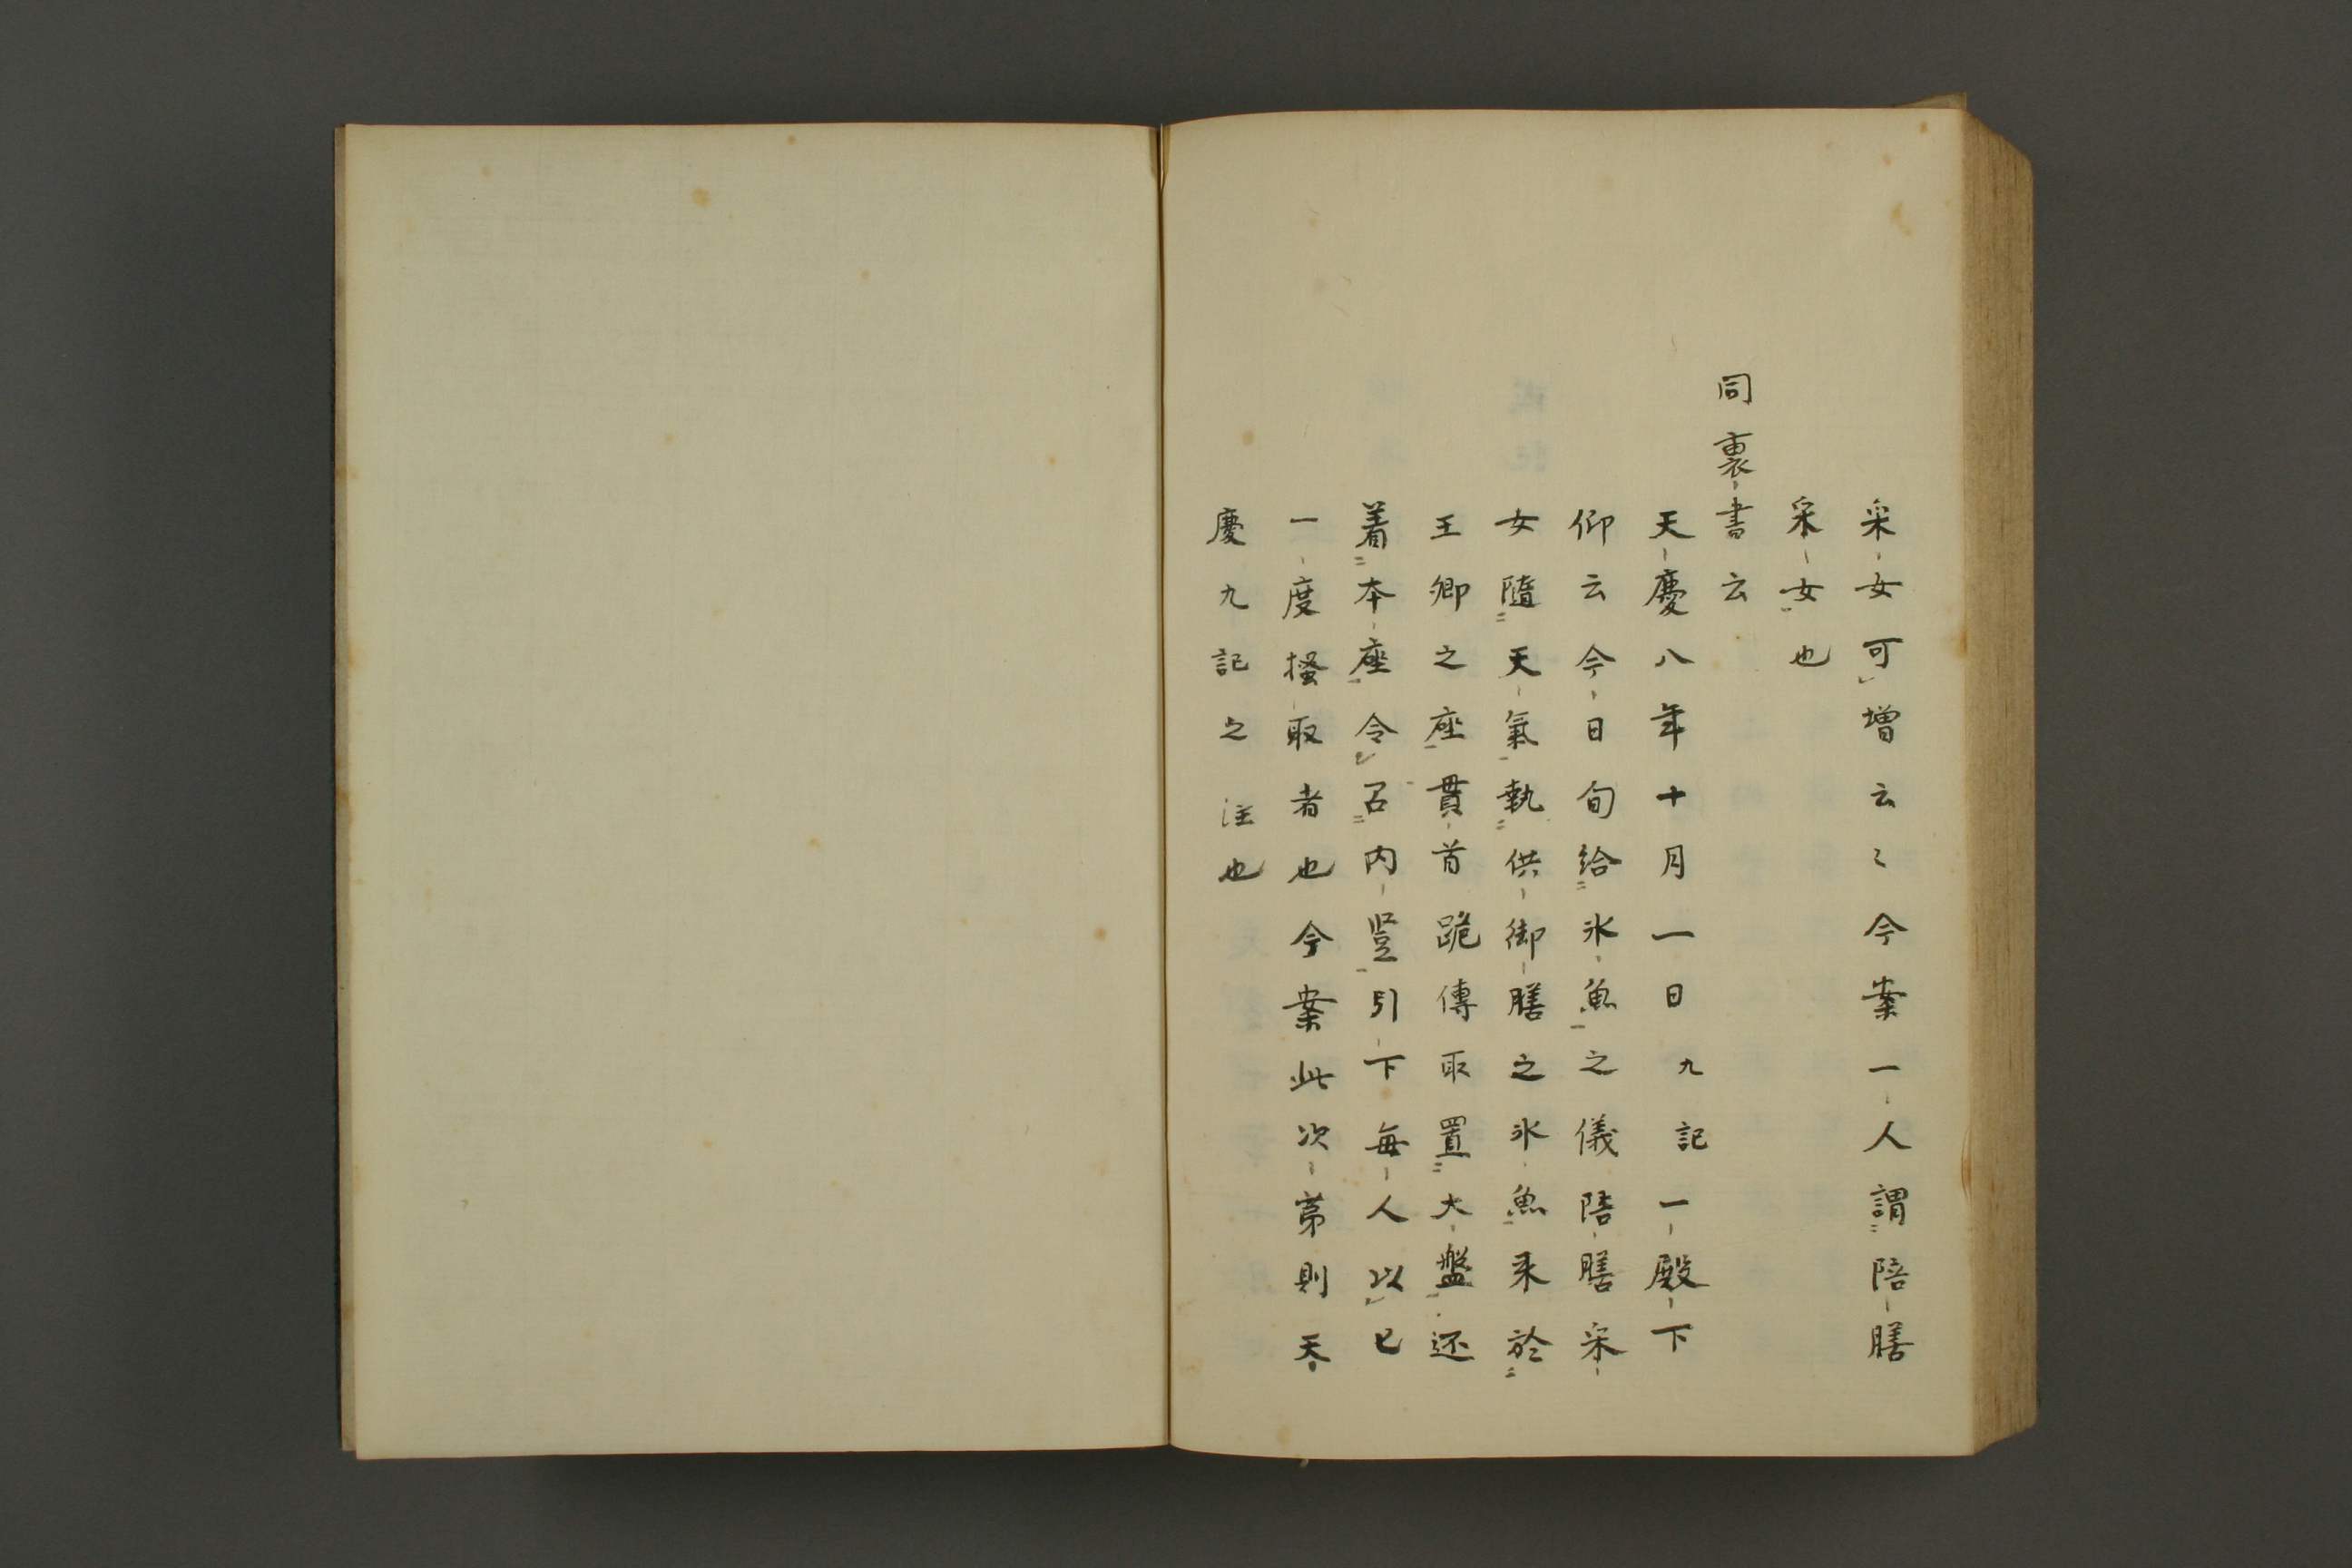 采女可増云々今案一人謂陪膳
采女也
同裏書云
天慶八年十月一日九記一殿下
仰云今日旬給氷魚之儀陪膳采
女隨天氣執供御膳之氷魚来於
王卿之座貫首跪傳取置大盤还
着本座令召内竪引下毎人以匕
一度掻取者也今案此次第則天
慶九記之注也